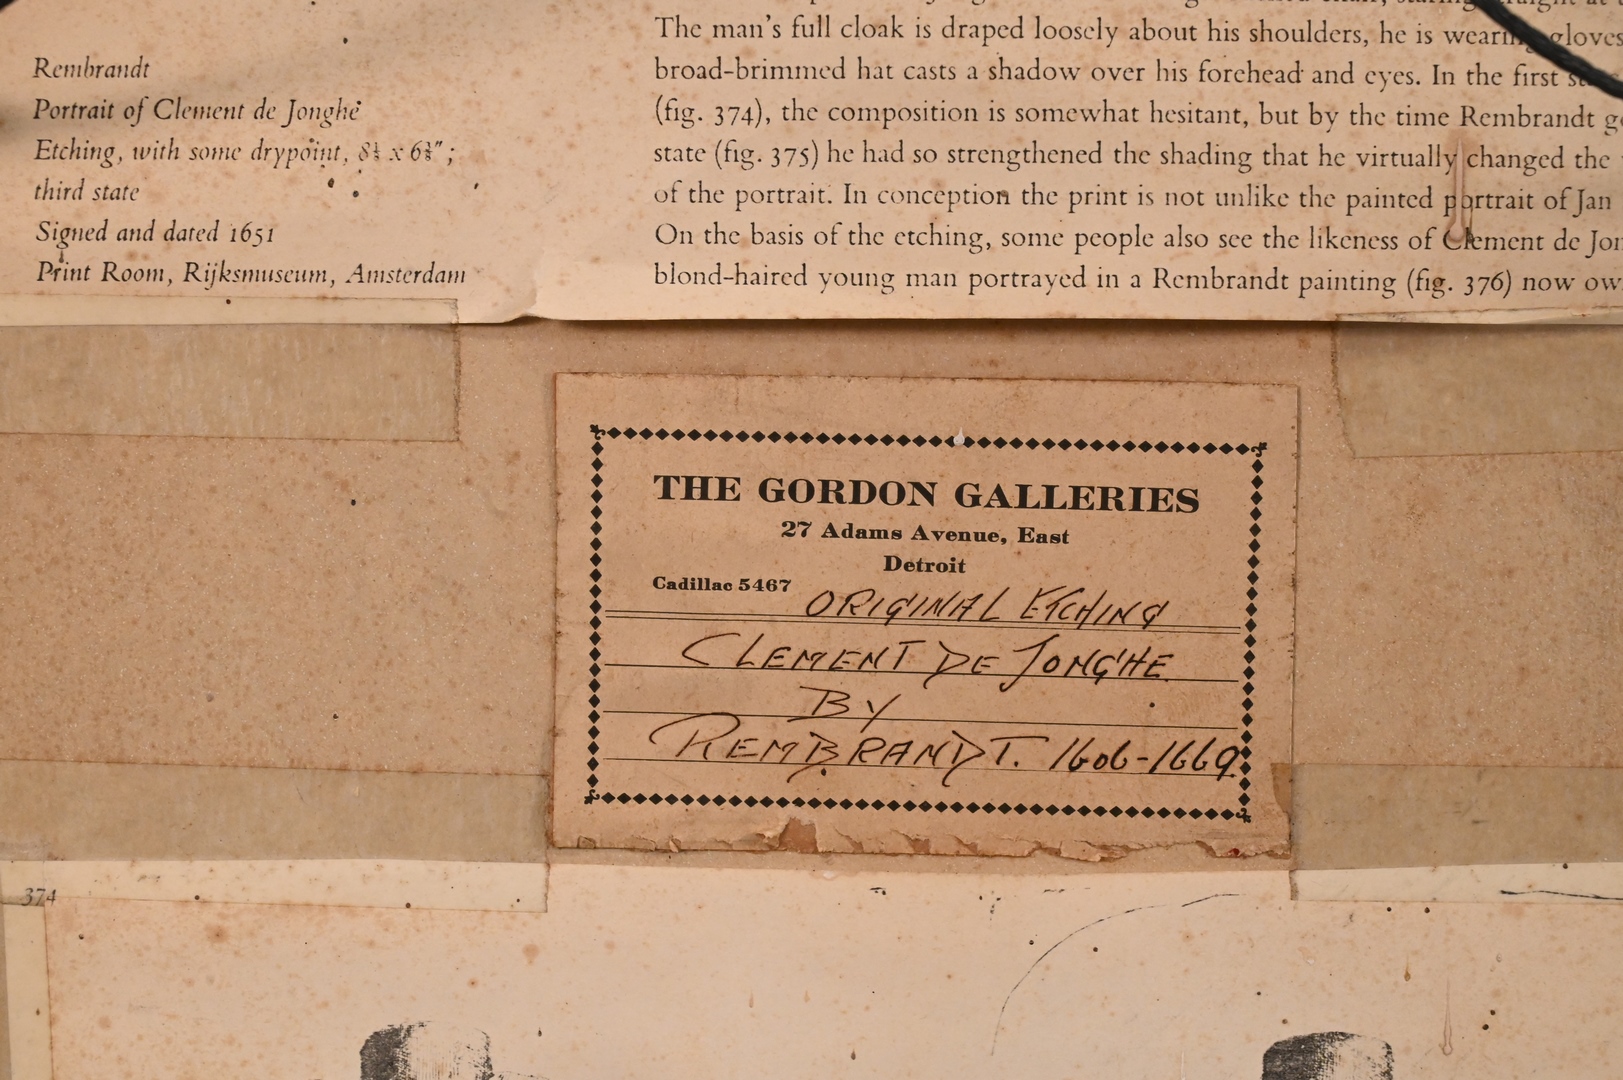 Rembrandt
Portrait of Clement de Jonghe
Etching, with some drypoint,
third state
Signed and dated 1651
Print Room, Rijksmuseum, Amsterdam
The man's full cloak is draped loosely about his shoulders, he is wearing gloves
broad-brimmed hat casts a shadow over his forehead and eyes. In the first
(fig. 374), the composition is somewhat hesitant, but by the time Rembrandt
state (fig. 375) he had so strengthened the shading that he virtually changed the
of the portrait. In conception the print is not unlike the painted portrait of Jan
On the basis of the etching, some people also see the likeness of Clement de
blond-haired young man portrayed in a Rembrandt painting (fig. 376) now
THE GORDON GALLERIES
27 Adams Avenue, East
Detroit
Cadillac 5467
ORIGINAL ETCHING
CLEMENT DE JONGHE
BY
REMBRANDT. 1606-1669
374